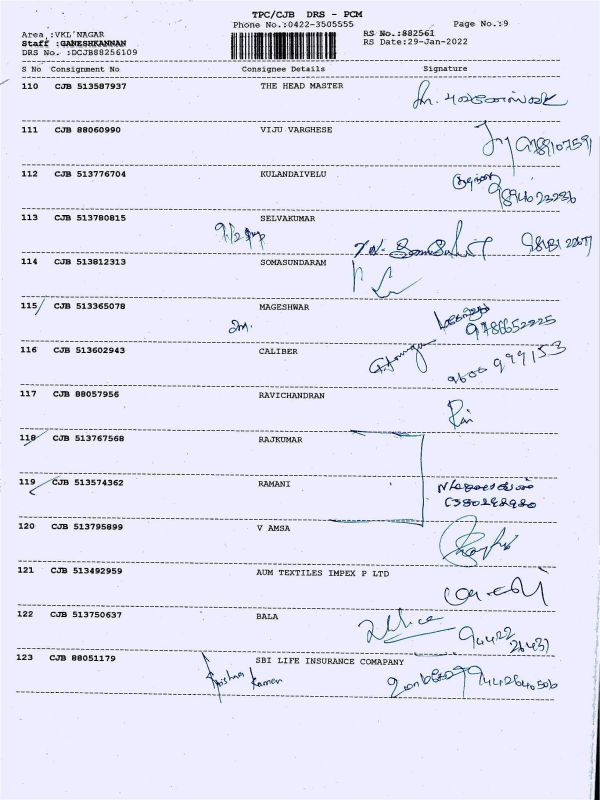 TPC/CJB DRS - PCM
Phone No.:0422-3505555 Page No.:9
Area :VKL NAGAR RS No.:882561
Staff :GANESHKANNAN RS Date:29-Jan-2022
DRS No. :DCJB88256109
S No Consignment No Consignee Details Signature
110 CJB 513587937 THE HEAD MASTER
111 CJB 88060990 VIJU VARGHESE
112 CJB 513776704 KULANDAIVELU
113 CJB 513780815 SELVAKUMAR
114 CJB 513812313 SOMASUNDARAM
115 CJB 513365078 MAGESHWAR
9786652225
116 CJB 513602943 CALIBER
9600 999153
117 CJB 88057956 RAVICHANDRAN
118 CJB 513767568 RAJKUMAR
119 CJB 513574362 RAMANI
120 CJB 513795899 V AMSA
121 CJB 513492959 AUM TEXTILES IMPEX P LTD
122 CJB 513750637 BALA
94422
26431
123 CJB 88051179 SBI LIFE INSURANCE COMAPANY
Krishna
Kumar 9442640506